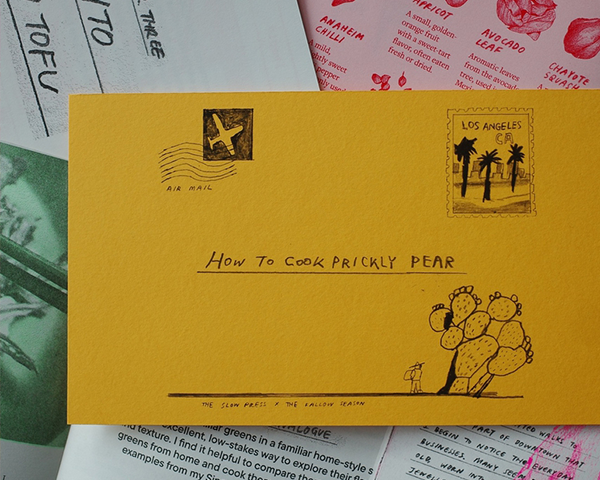 THREE
TO
TOFU
ANAHEIM
CHILLI
A mild,
sweet
pepper
APRICOT
A small, golden-
orange fruit
with a sweet-tart
flavor, often eaten
fresh or dried.
AVOCADO
LEAF
Aromatic leaves
from the avocado
tree, used
CHAYOTE
SQUASH
AIR MAIL
LOS ANGELES
CA
HOW TO COOK PRICKLY PEAR
THE SLOW PRESS X THE FALLOW SEASON
greens in a familiar home-style s
excellent, low-stakes way to explore their
and texture. I find it helpful to compare the
greens from home and cook the
examples from my
WALKS TO
PART OF DOWNTOWN THAT
BEGIN TO NOTICE THE EVERYDAY
BUSINESSES. MANY SEEM
OLD, WORN INTO